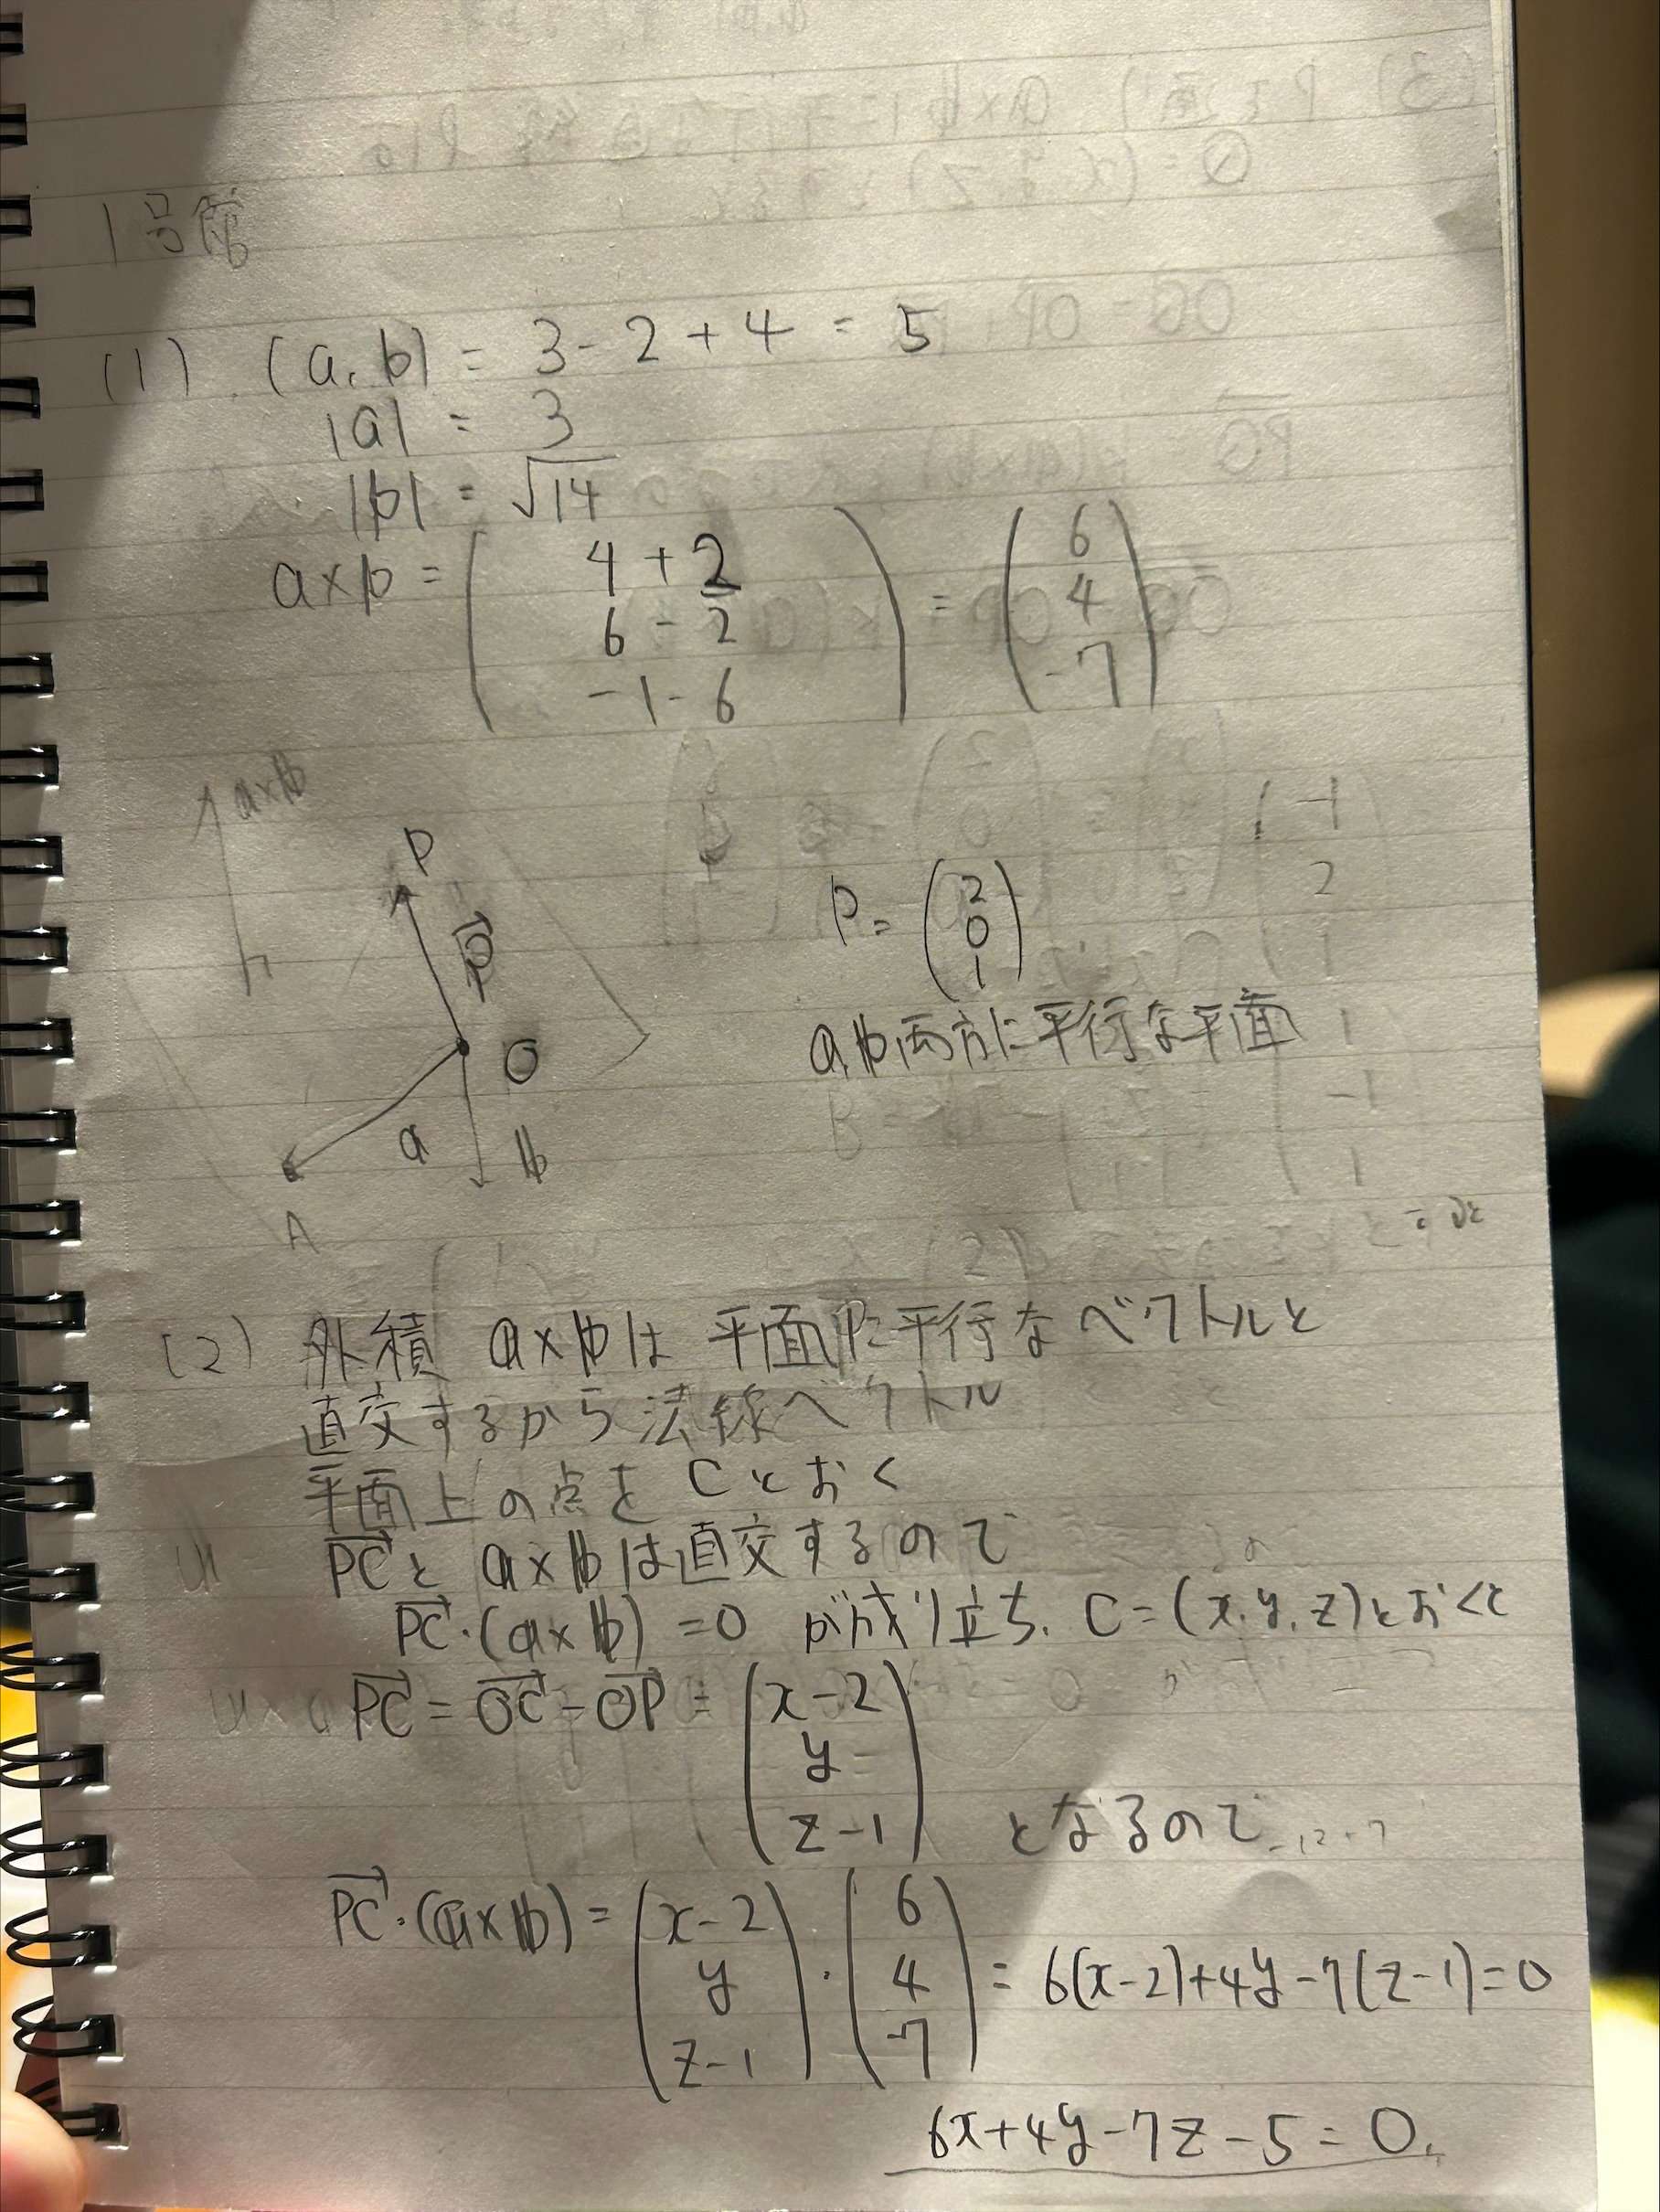 1号館
(1) (a, b) = 3 - 2 + 4 = 5
|a| = 3
|b| = √14
a×b = ( 4+2 6-2 -1-6 ) = ( 6 4 -7 )
a×b
P
P = ( 2 0 1 )
a, b 両方に平行な平面
O
a
b
A
(2) 外積 a×b は 平面Pに平行なベクトルと
直交するから法線ベクトル
平面上の点を C とおく
PC と a×b は直交するので
PC・(a×b) = 0 が成り立ち、C = (x, y, z) とおくと
PC = OC - OP = ( x-2 y z-1 ) となるので
-12+7
PC・(a×b) = ( x-2 y z-1 )・( 6 4 -7 ) = 6(x-2)+4y-7(z-1)=0
6x+4y-7z-5=0.